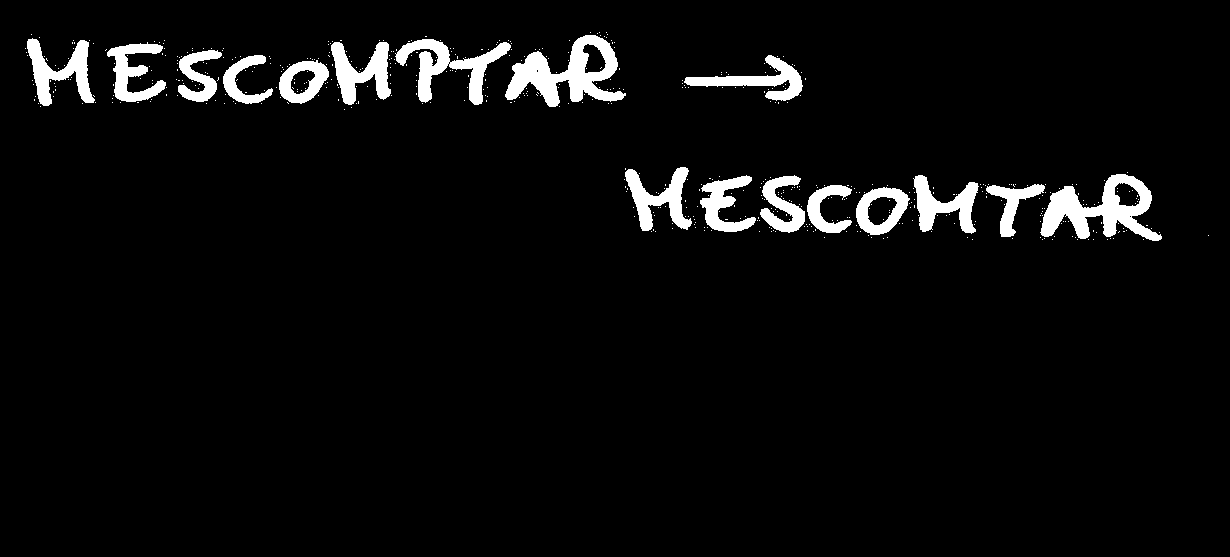 MESCOMPTAR →
MESCOMTAR